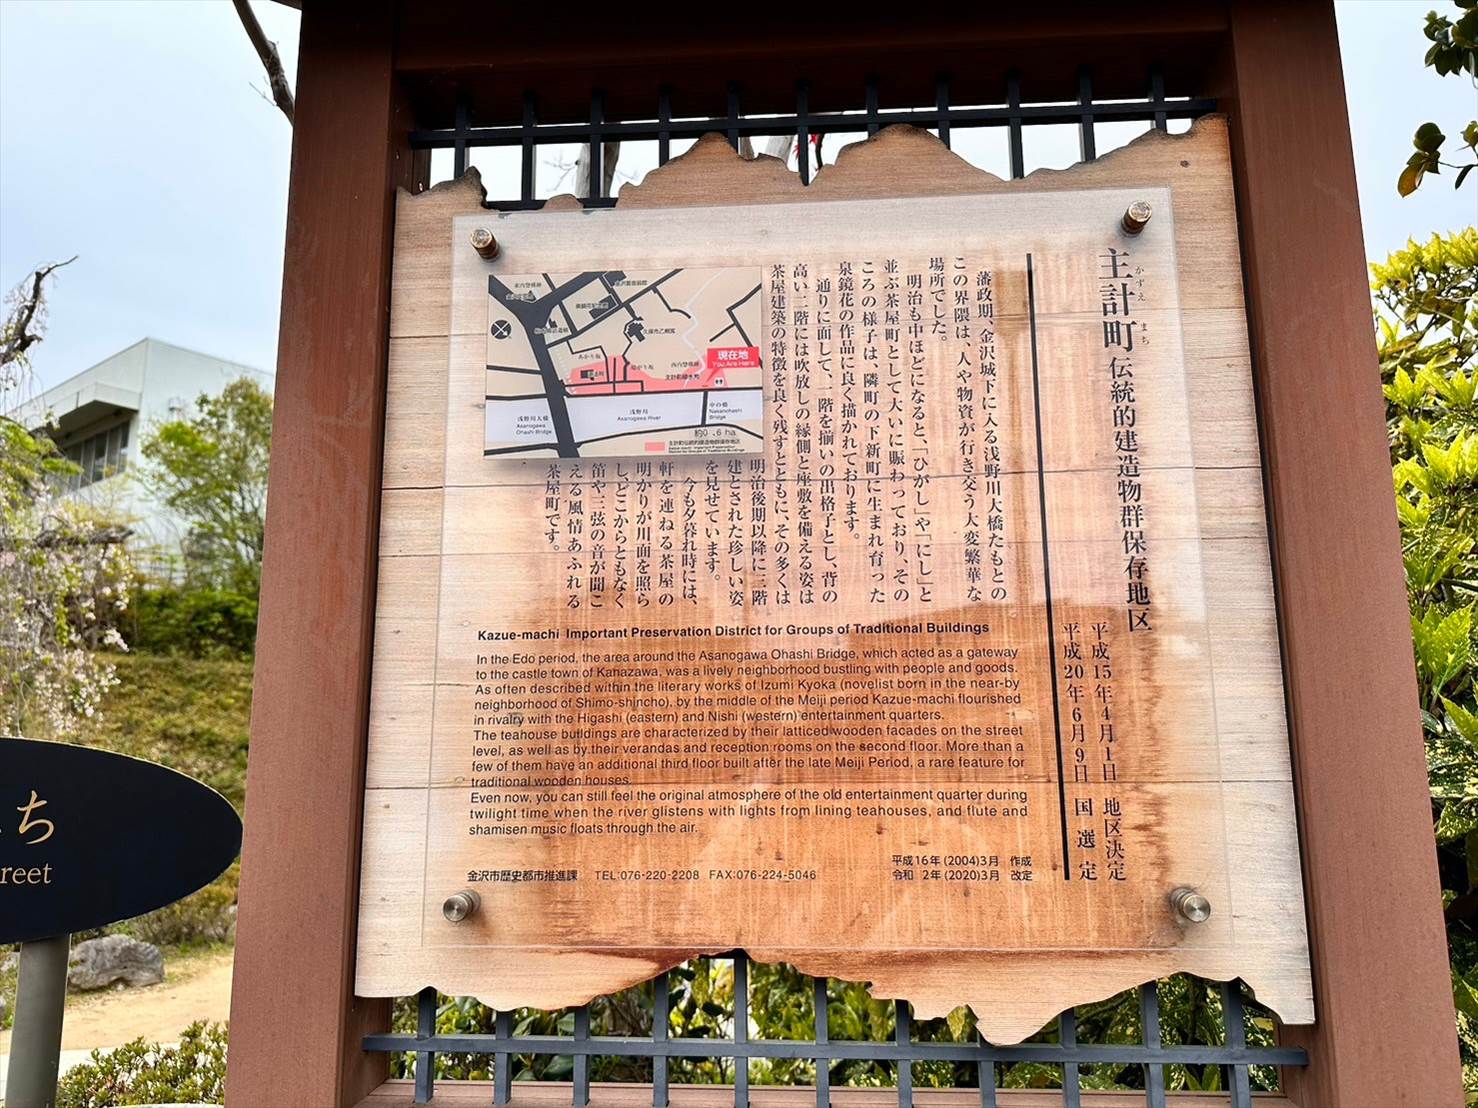 主計町伝統的建造物群保存地区
かずえ まち
平成15年4月1日 地区決定
平成20年6月9日 国選定
藩政期、金沢城下に入る浅野川大橋たもとの
この界隈は、人や物資が行き交う大変繁華な
場所でした。
明治も中ほどになると、「ひがし」や「にし」と
並ぶ茶屋町として大いに賑わっており、その
ころの様子は、隣町の下新町に生まれ育った
泉鏡花の作品に良く描かれております。
通りに面して、一階を揃いの出格子とし、背の
高い二階には吹放しの縁側と座敷を備える姿は
茶屋建築の特徴を良く残すとともに、その多くは
明治後期以降に三階
建とされた珍しい姿
を見せています。
今も夕暮れ時には、
軒を連ねる茶屋の
明かりが川面を照ら
し、どこからともなく
笛や三弦の音が聞こ
える風情あふれる
茶屋町です。
現在地
You Are Here
あかり坂
暗がり坂
久保市乙剣宮
西内惣構跡
主計町緑水苑
浅野川大橋
Asanogawa
Ohashi Bridge
浅野川
Asanogawa River
中の橋
Nakanohashi
Bridge
約0.6 ha
主計町伝統的建造物群保存地区
Kazue-machi Important Preservation District for Groups of Traditional Buildings
In the Edo period, the area around the Asanogawa Ohashi Bridge, which acted as a gateway
to the castle town of Kanazawa, was a lively neighborhood bustling with people and goods.
As often described within the literary works of Izumi Kyoka (novelist born in the near-by
neighborhood of Shimo-shincho), by the middle of the Meiji period Kazue-machi flourished
in rivalry with the Higashi (eastern) and Nishi (western) entertainment quarters.
The teahouse buildings are characterized by their latticed wooden facades on the street
level, as well as by their verandas and reception rooms on the second floor. More than a
few of them have an additional third floor built after the late Meiji Period, a rare feature for
traditional wooden houses.
Even now, you can still feel the original atmosphere of the old entertainment quarter during
twilight time when the river glistens with lights from lining teahouses, and flute and
shamisen music floats through the air.
平成16年(2004)3月 作成
令和 2年(2020)3月 改定
金沢市歴史都市推進課 TEL:076-220-2208 FAX:076-224-5046
ち
reet